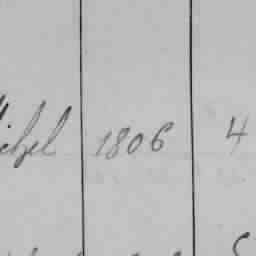 ichel 1806 4